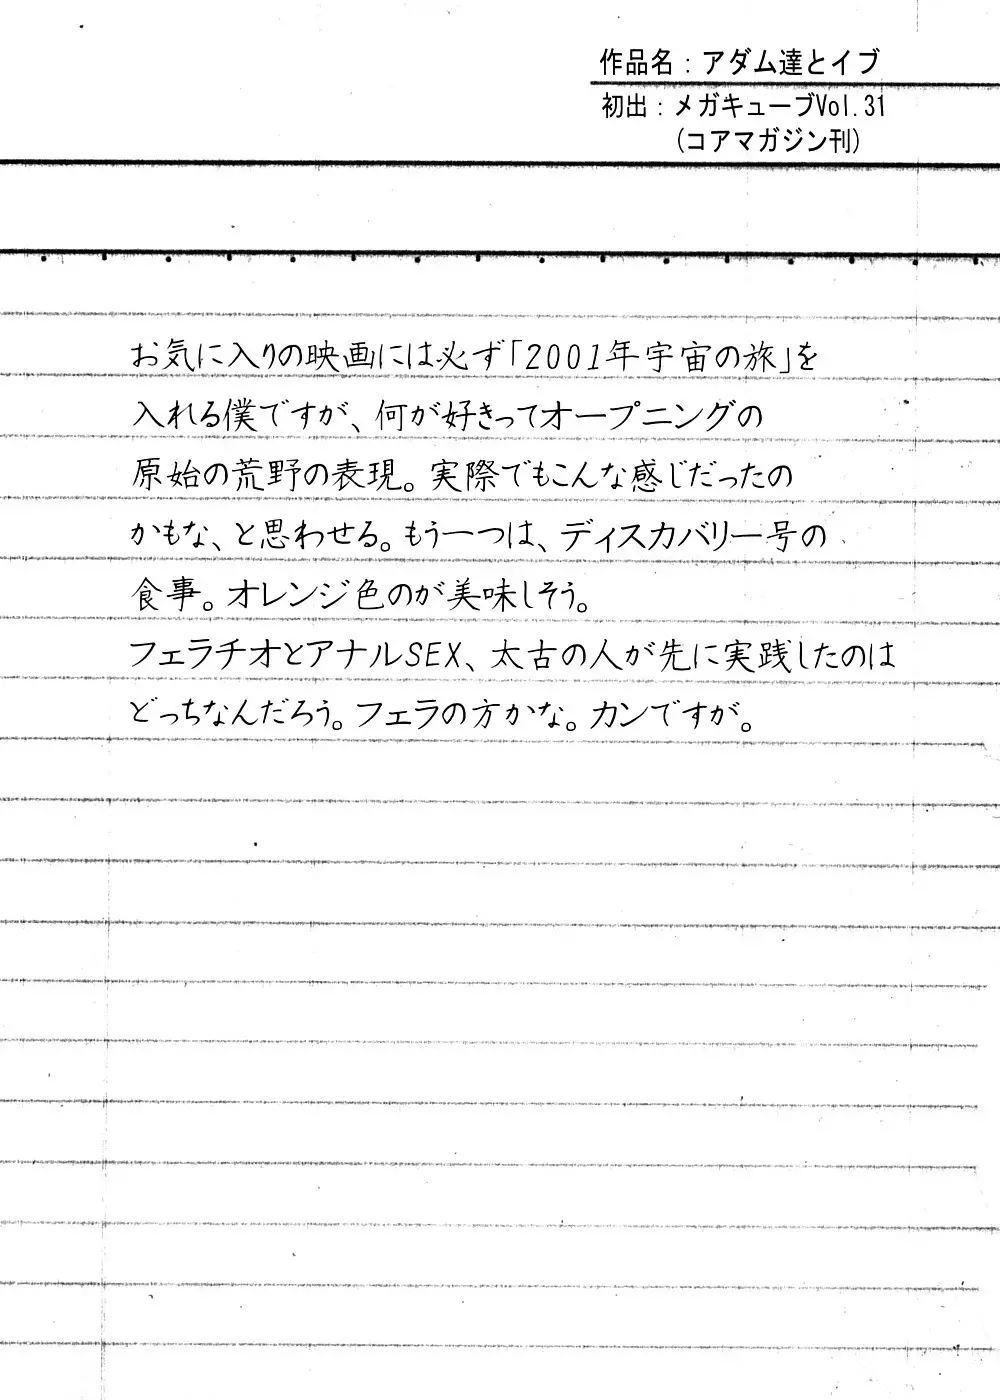 作品名：アダム達とイブ
初出：メガキューブVol.31
(コアマガジン刊)
お気に入りの映画には必ず「2001年宇宙の旅」を
入れる僕ですが、何が好きってオープニングの
原始の荒野の表現。実際でもこんな感じだったの
かもな、と思わせる。もう一つは、ディスカバリー号の
食事。オレンジ色のが美味しそう。
フェラチオとアナルSEX、太古の人が先に実践したのは
どっちなんだろう。フェラの方かな。カンですが。